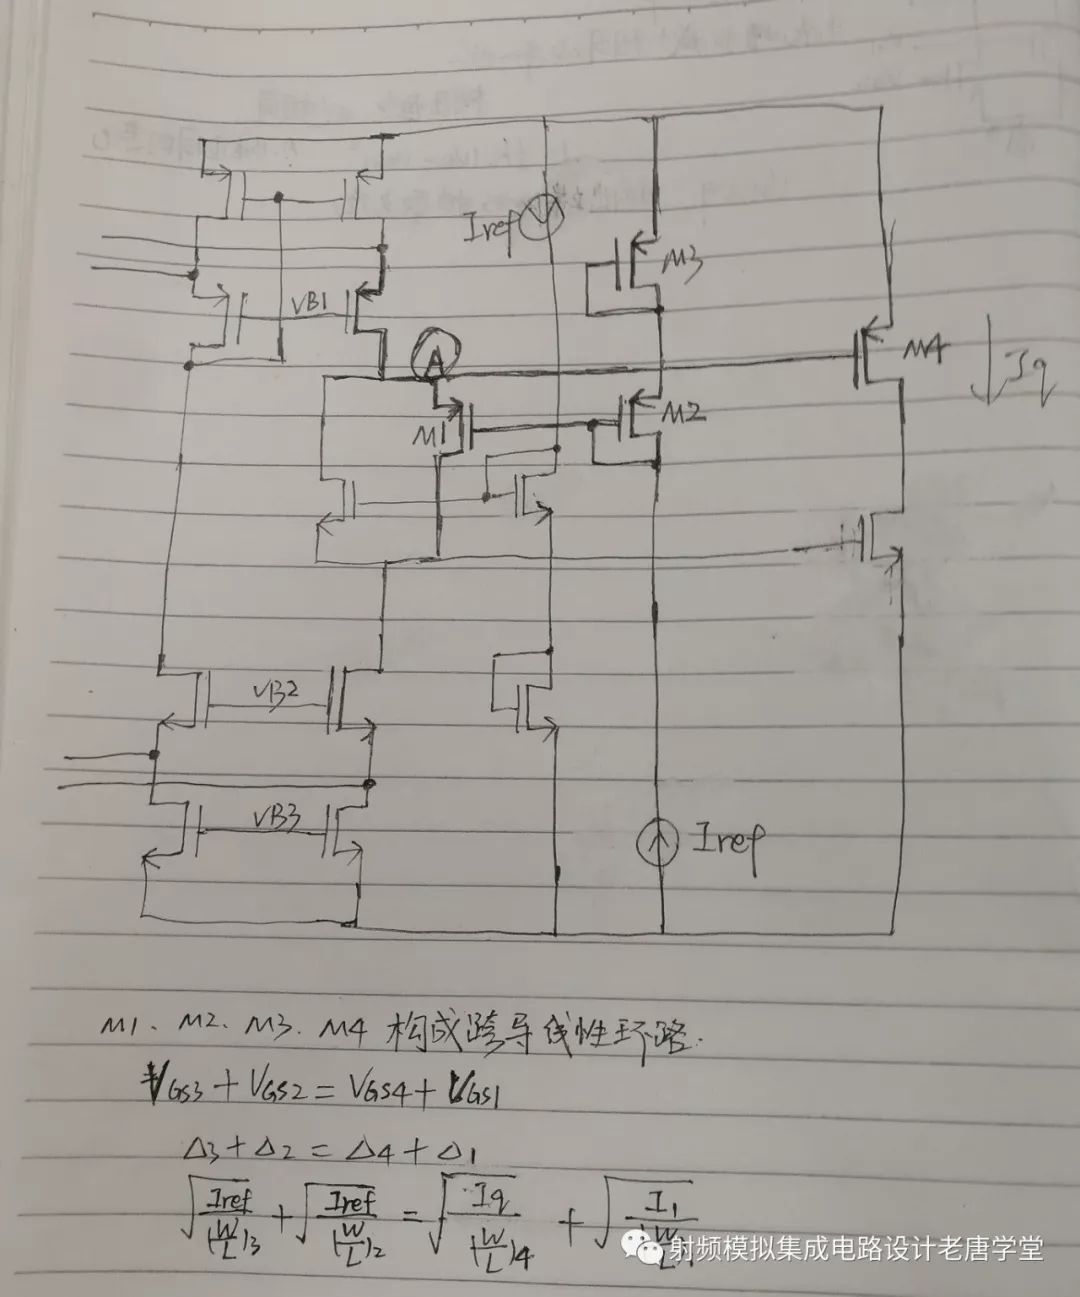 Iref
M3
VB1
M4
Iq
A
M1
M2
VB2
VB3
Iref
M1、M2、M3、M4 构成跨导线性环路.
VGS3 + VGS2 = VGS4 + VGS1
Δ3 + Δ2 = Δ4 + Δ1
√(Iref/(W/L)3) + √(Iref/(W/L)2) = √(Iq/(W/L)4) + √(I1/(W/L)1)
射频模拟集成电路设计老唐学堂